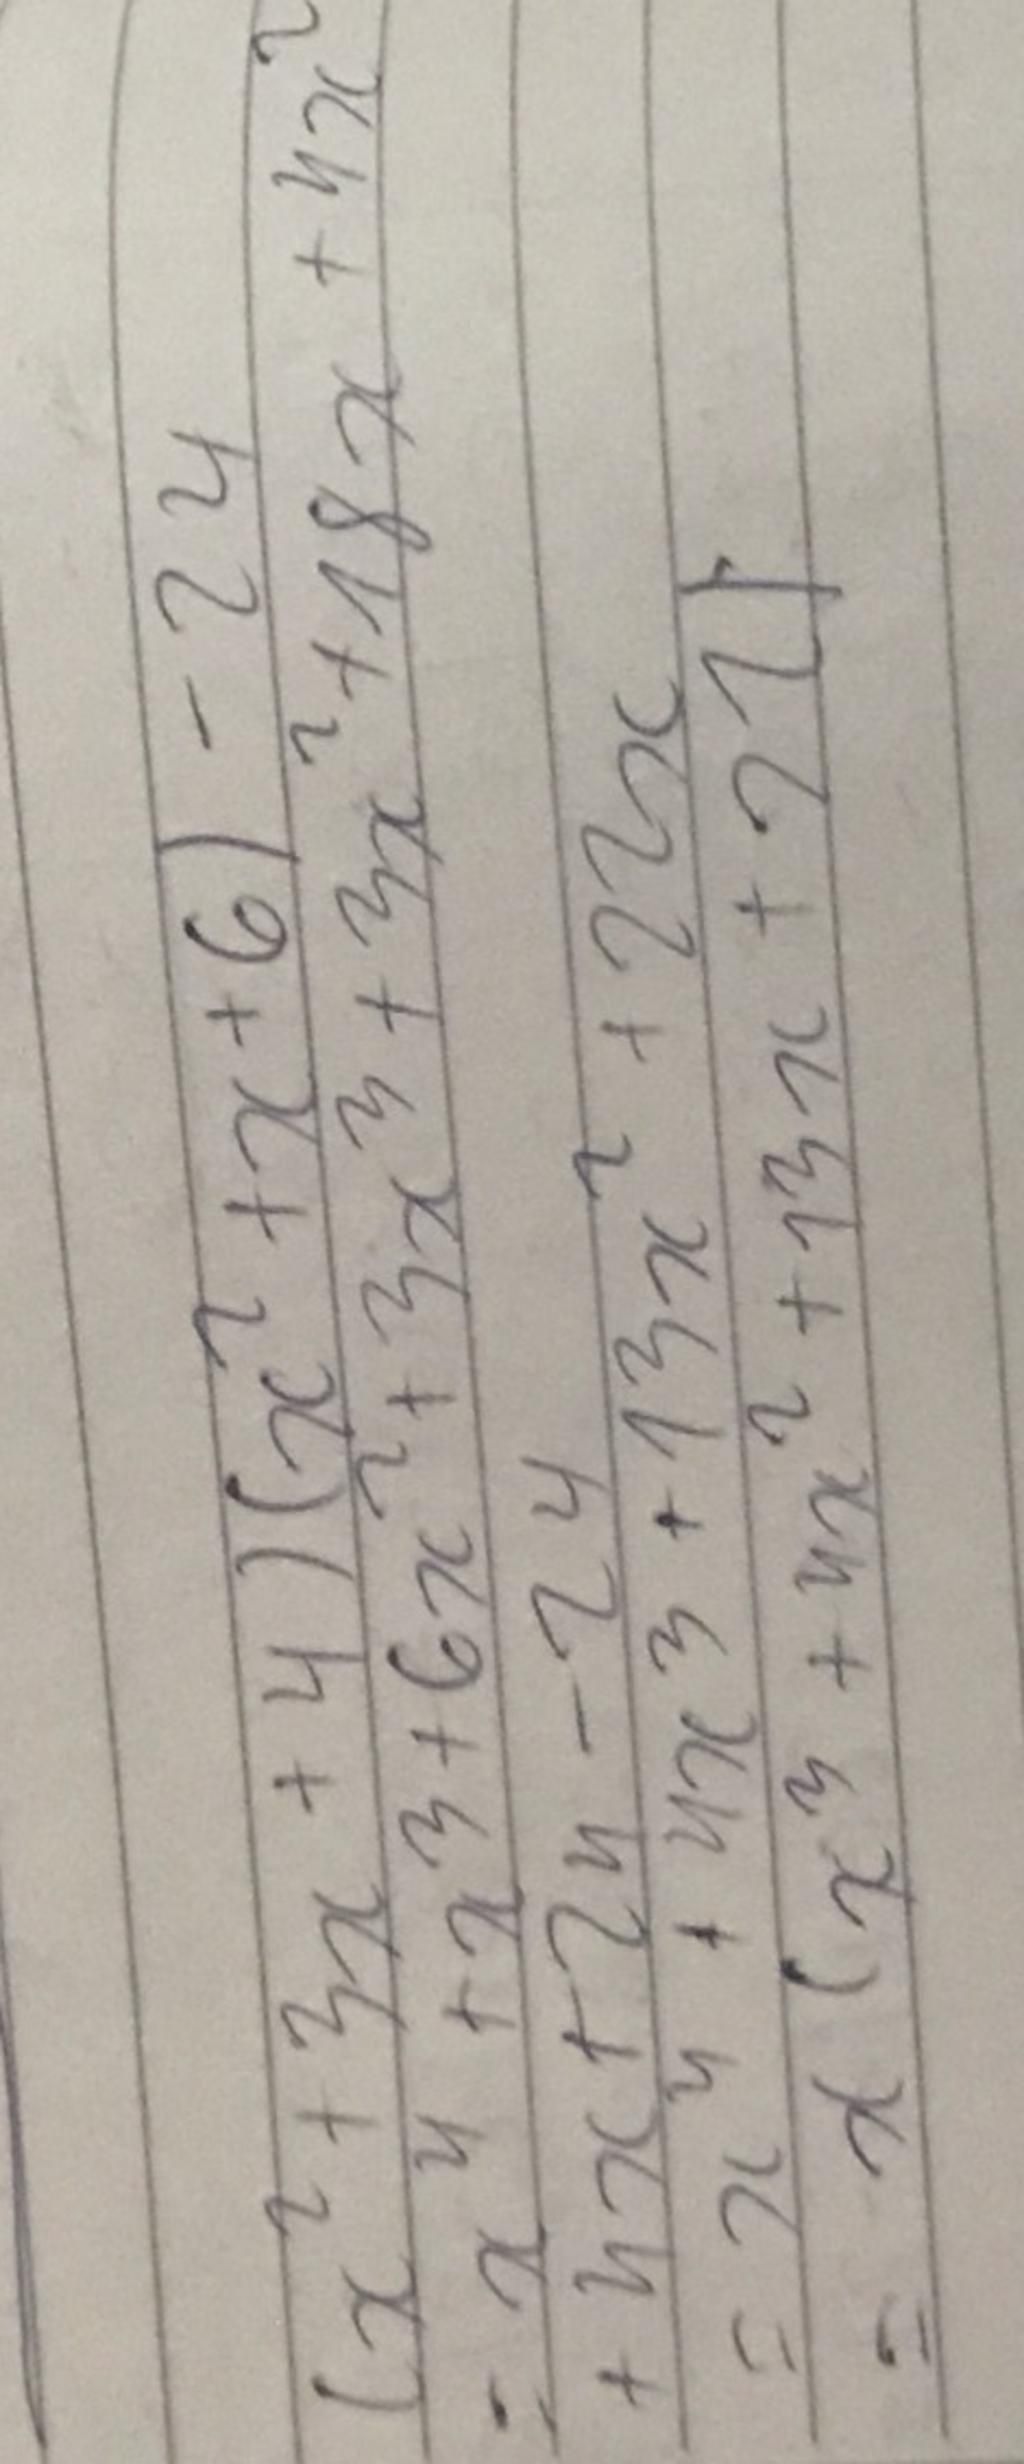 (x² + 3x + 4)(x² + x + 6) - 24
= x⁴ + x³ + 6x² + 3x³ + 3x² + 18x + 4x²
+ 4x + 24 - 24
= x⁴ + 4x³ + 13x² + 22x
= x(x³ + 4x² + 13x + 22)